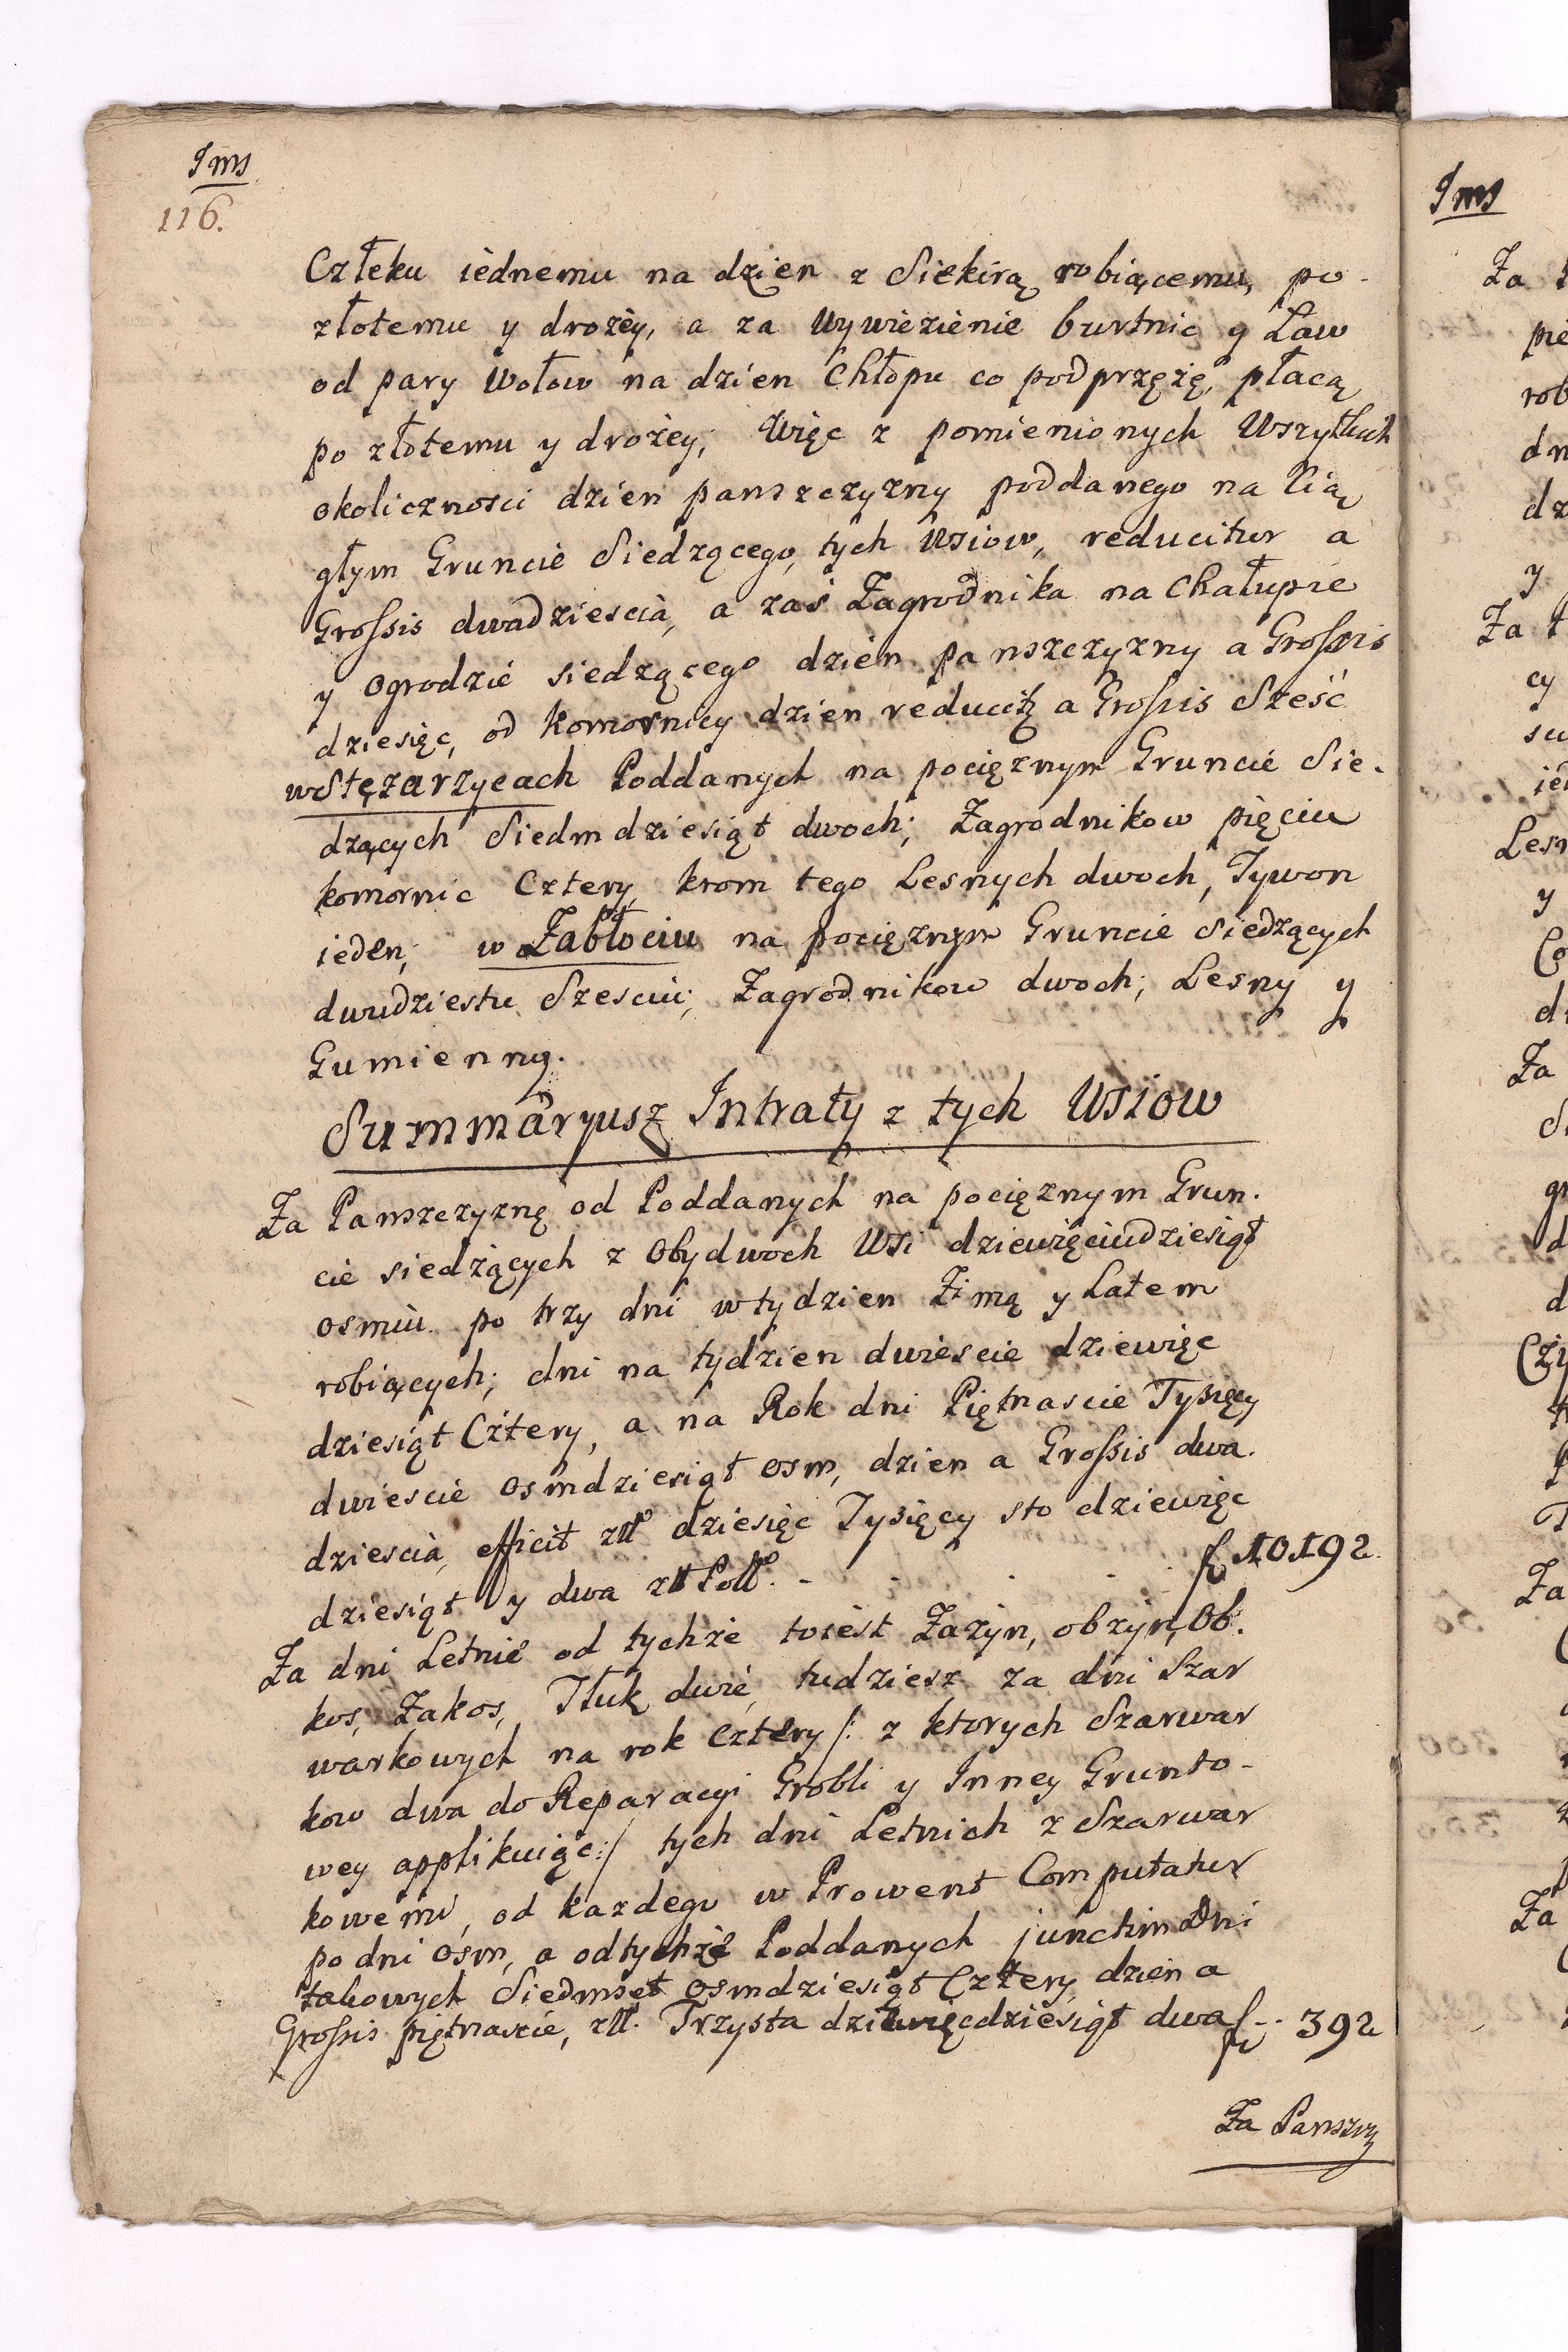 Jms
116.
Człeku iednemu na dzien z Siekirą robiącemu, po-
złotemu y drożey, a za wywiezienie burtnic y Ław
od pary Wołow na dzien Chłopu co podprzęże, płacą
po złotemu y drożey; Więc z pomienionych Wszytkich
okolicznosci dzien panszczyzny poddanego na Cią
głym Gruncie Siedzącego, tych Wsiow, reducitur a
Grossis dwadziescia, a zaś Zagrodnika na Chałupie
y Ogrodzie siedzącego dzien panszczyzny a Grossis
dziesięc, od Komornicy dzien reducitz a Grossis Sześć
w Stężarzycach Poddanych na pociężnym Gruncie Sie-
dzących Siedmdziesiąt dwoch; Zagrodnikow pięciu
komornic Cztery, krom tego Lesnych dwoch, Tywon
ieden; w Zabłociu na pociężnym Gruncie Siedzących
dwudziestu Szesciu; Zagrodnikow dwoch; Lesny y
Gumienny.
Summaryusz Intraty z tych Wsiow
Za Panszczyznę od Poddanych na pociężnym Grun-
cie siedzących z Obydwoch Wsi dziewięciudziesiąt
osmiu po trzy dni w tydzien Zimą y Latem
robiących; dni na tydzien dwiescie dziewięc
dziesiąt Cztery, a na Rok dni Piętnascie Tysięcy
dwiescie osmdziesiąt osm, dzien a Grossis dwa-
dziescia, efficit złł dziesięc Tysięcy sto dziewięc
dziesiąt y dwa złł Poll. - . . . f 10192.
Za dni Letnie od tychże toiest Zażyn, obżyn, Ob-
kos, Zakos, Tłuk dwie, tudziesz za dni Szar
warkowych na rok cztery /: z ktorych Szarwar
kow dwa do Reparacyi Grobli y Inney Grunto-
wey applikuiąc :/ tych dni Letnich z Szarwar
kowemi, od każdego w Prowent Computatur
po dni osm, a od tychże Poddanych junctim Dni
takowych Siedmset osmdziesiąt Cztery, dzien a
Grossis piętnascie, złł. Trzysta dziewięcdziesiąt dwa f -. 392
Za Panszcz
Jms
Za
pie
rob
dn
dz
y
Za t
cy
su
ied
Lesn
y
Co
d
Za
S
gr
d
d
Czy
Za
Za